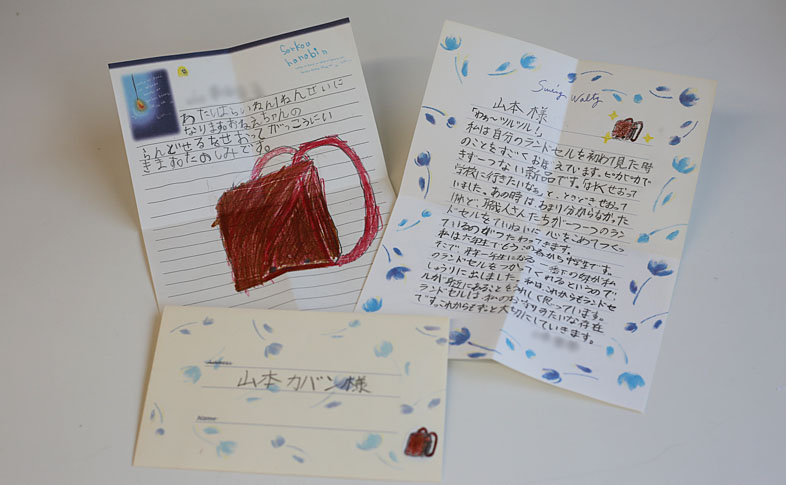 Senkou
hanabi
あたしはらいねん1ねんせいに
なります。おねえちゃんの
らんどせるをせおってがっこうにい
きます。たのしみです。
Swing Waltz
山本様
「わぁ〜ツルツル!」
私は自分のランドセルを初めて見た時
のことをすごくお母えています。ピカピカで
きず一つない新品です。早くせおって
学校に行きたいなぁ、と
いました。あの時は、あまり分からなかった
けれど、職人さんたちが一つ一つのラン
ドセルをていねいに心をこめてつくっ
ているのがつたわってきます。
私は六年生でもう春から中学生です。
そこで、来年一年生になる
のランドセルをつかってくれるというので、
しゅうりに出しました。私はこれからもランドセ
ルが身近にあることをうれしく思っています。
ランドセルは、私のお守りみたいな存在
です。これからもずっと大切にしていきます。
山本カバン様
Name